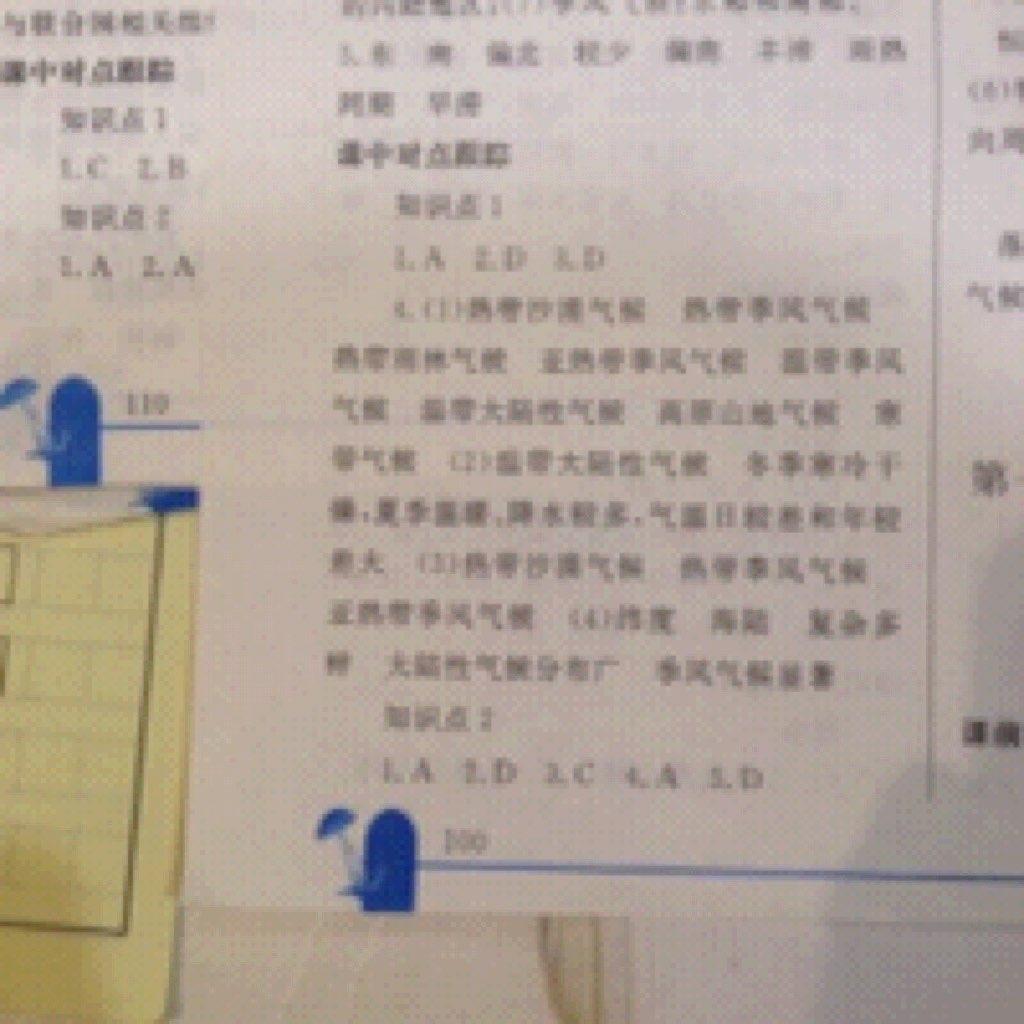 课中对点跟踪
知识点1
1.C 2.B
知识点2
1.A 2.A
110
5.东 南 偏北 较少 偏南 丰沛 雨热
同期 旱涝
课中对点跟踪
知识点1
1.A 2.D 3.D
4.(1)热带沙漠气候 热带季风气候
热带雨林气候 亚热带季风气候 温带季风
气候 温带大陆性气候 高原山地气候 寒
带气候 (2)温带大陆性气候 冬季寒冷干
燥,夏季温暖,降水较多,气温日较差和年较
差大 (3)热带沙漠气候 热带季风气候
亚热带季风气候 (4)纬度 海陆 复杂多
样 大陆性气候分布广 季风气候显著
知识点2
1.A 2.D 3.C 4.A 5.D
100
向周
气候
第一
课前